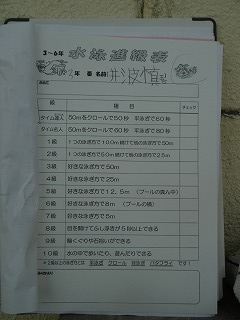 3～6年 水泳進級表
年 番 名前(
級 種目 チェック
タイム達人 50mをクロールで50秒 平泳ぎで60秒
タイム名人 50mをクロールで60秒 平泳ぎで80秒
1級 1つの泳ぎ方で100m続けて他の泳ぎ方で50m
2級 1つの泳ぎ方で50m続けて他の泳ぎ方で25m
3級 好きな泳ぎ方で50m
4級 好きな泳ぎ方で25m
5級 好きな泳ぎ方で12.5m (プールの真ん中)
6級 好きな泳ぎ方で8m (プールの横)
7級 好きな泳ぎ方で5m
8級 目を開けてふし浮きが5秒以上できる
9級 輪くぐりや石拾いができる
10級 水の中で歩いたり、遊んだりできる
*2級以上の泳ぎ方とは 平泳ぎ クロール 背泳ぎ バタフライ です!